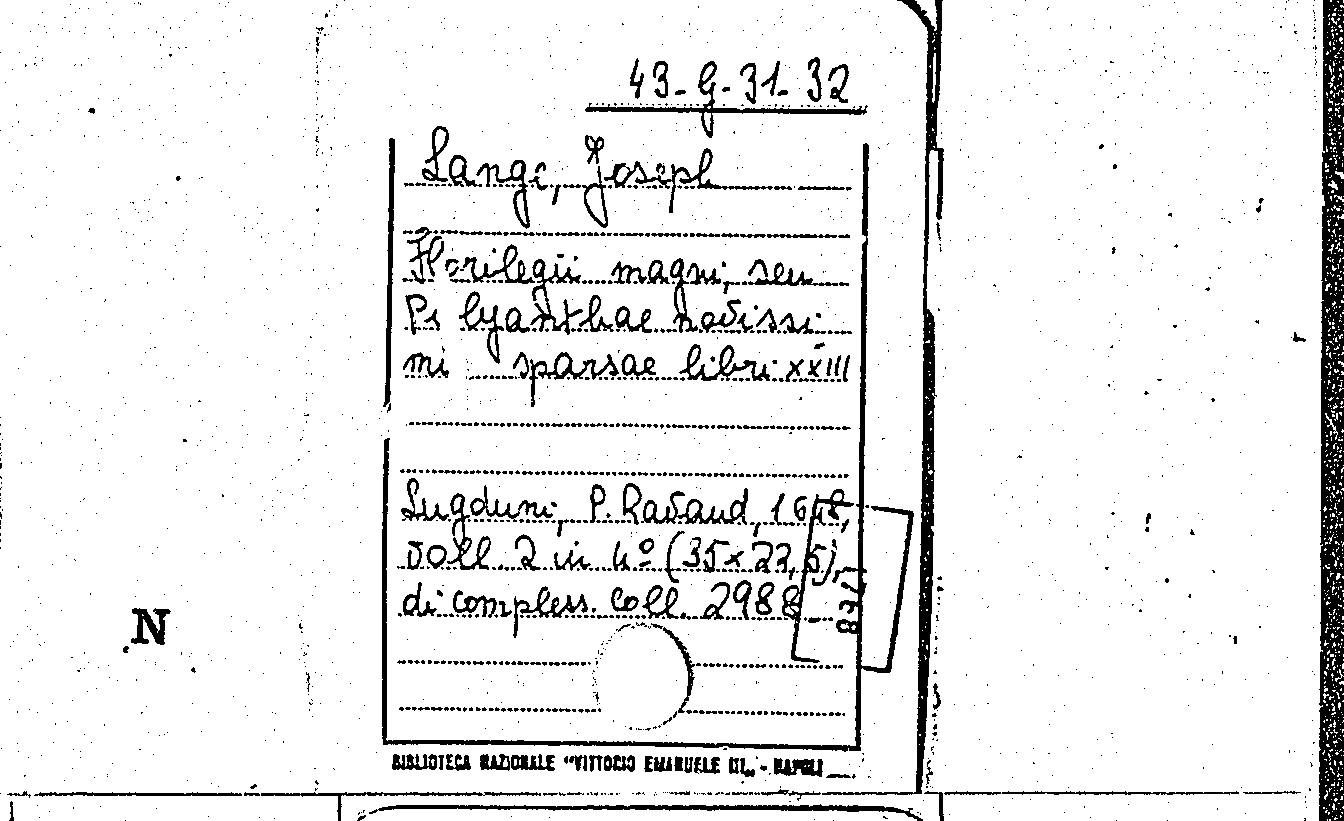 43-G-31-32
Lange, Joseph
Florilegii magni, seu
Polyanthae novissi
mi sparsae libri XXIII
Lugduni, P. Ravaud, 1648,
voll. 2 in 4º (35x22,5),
di compless. coll. 2988
N
BIBLIOTECA NAZIONALE "VITTORIO EMANUELE III" - NAPOLI